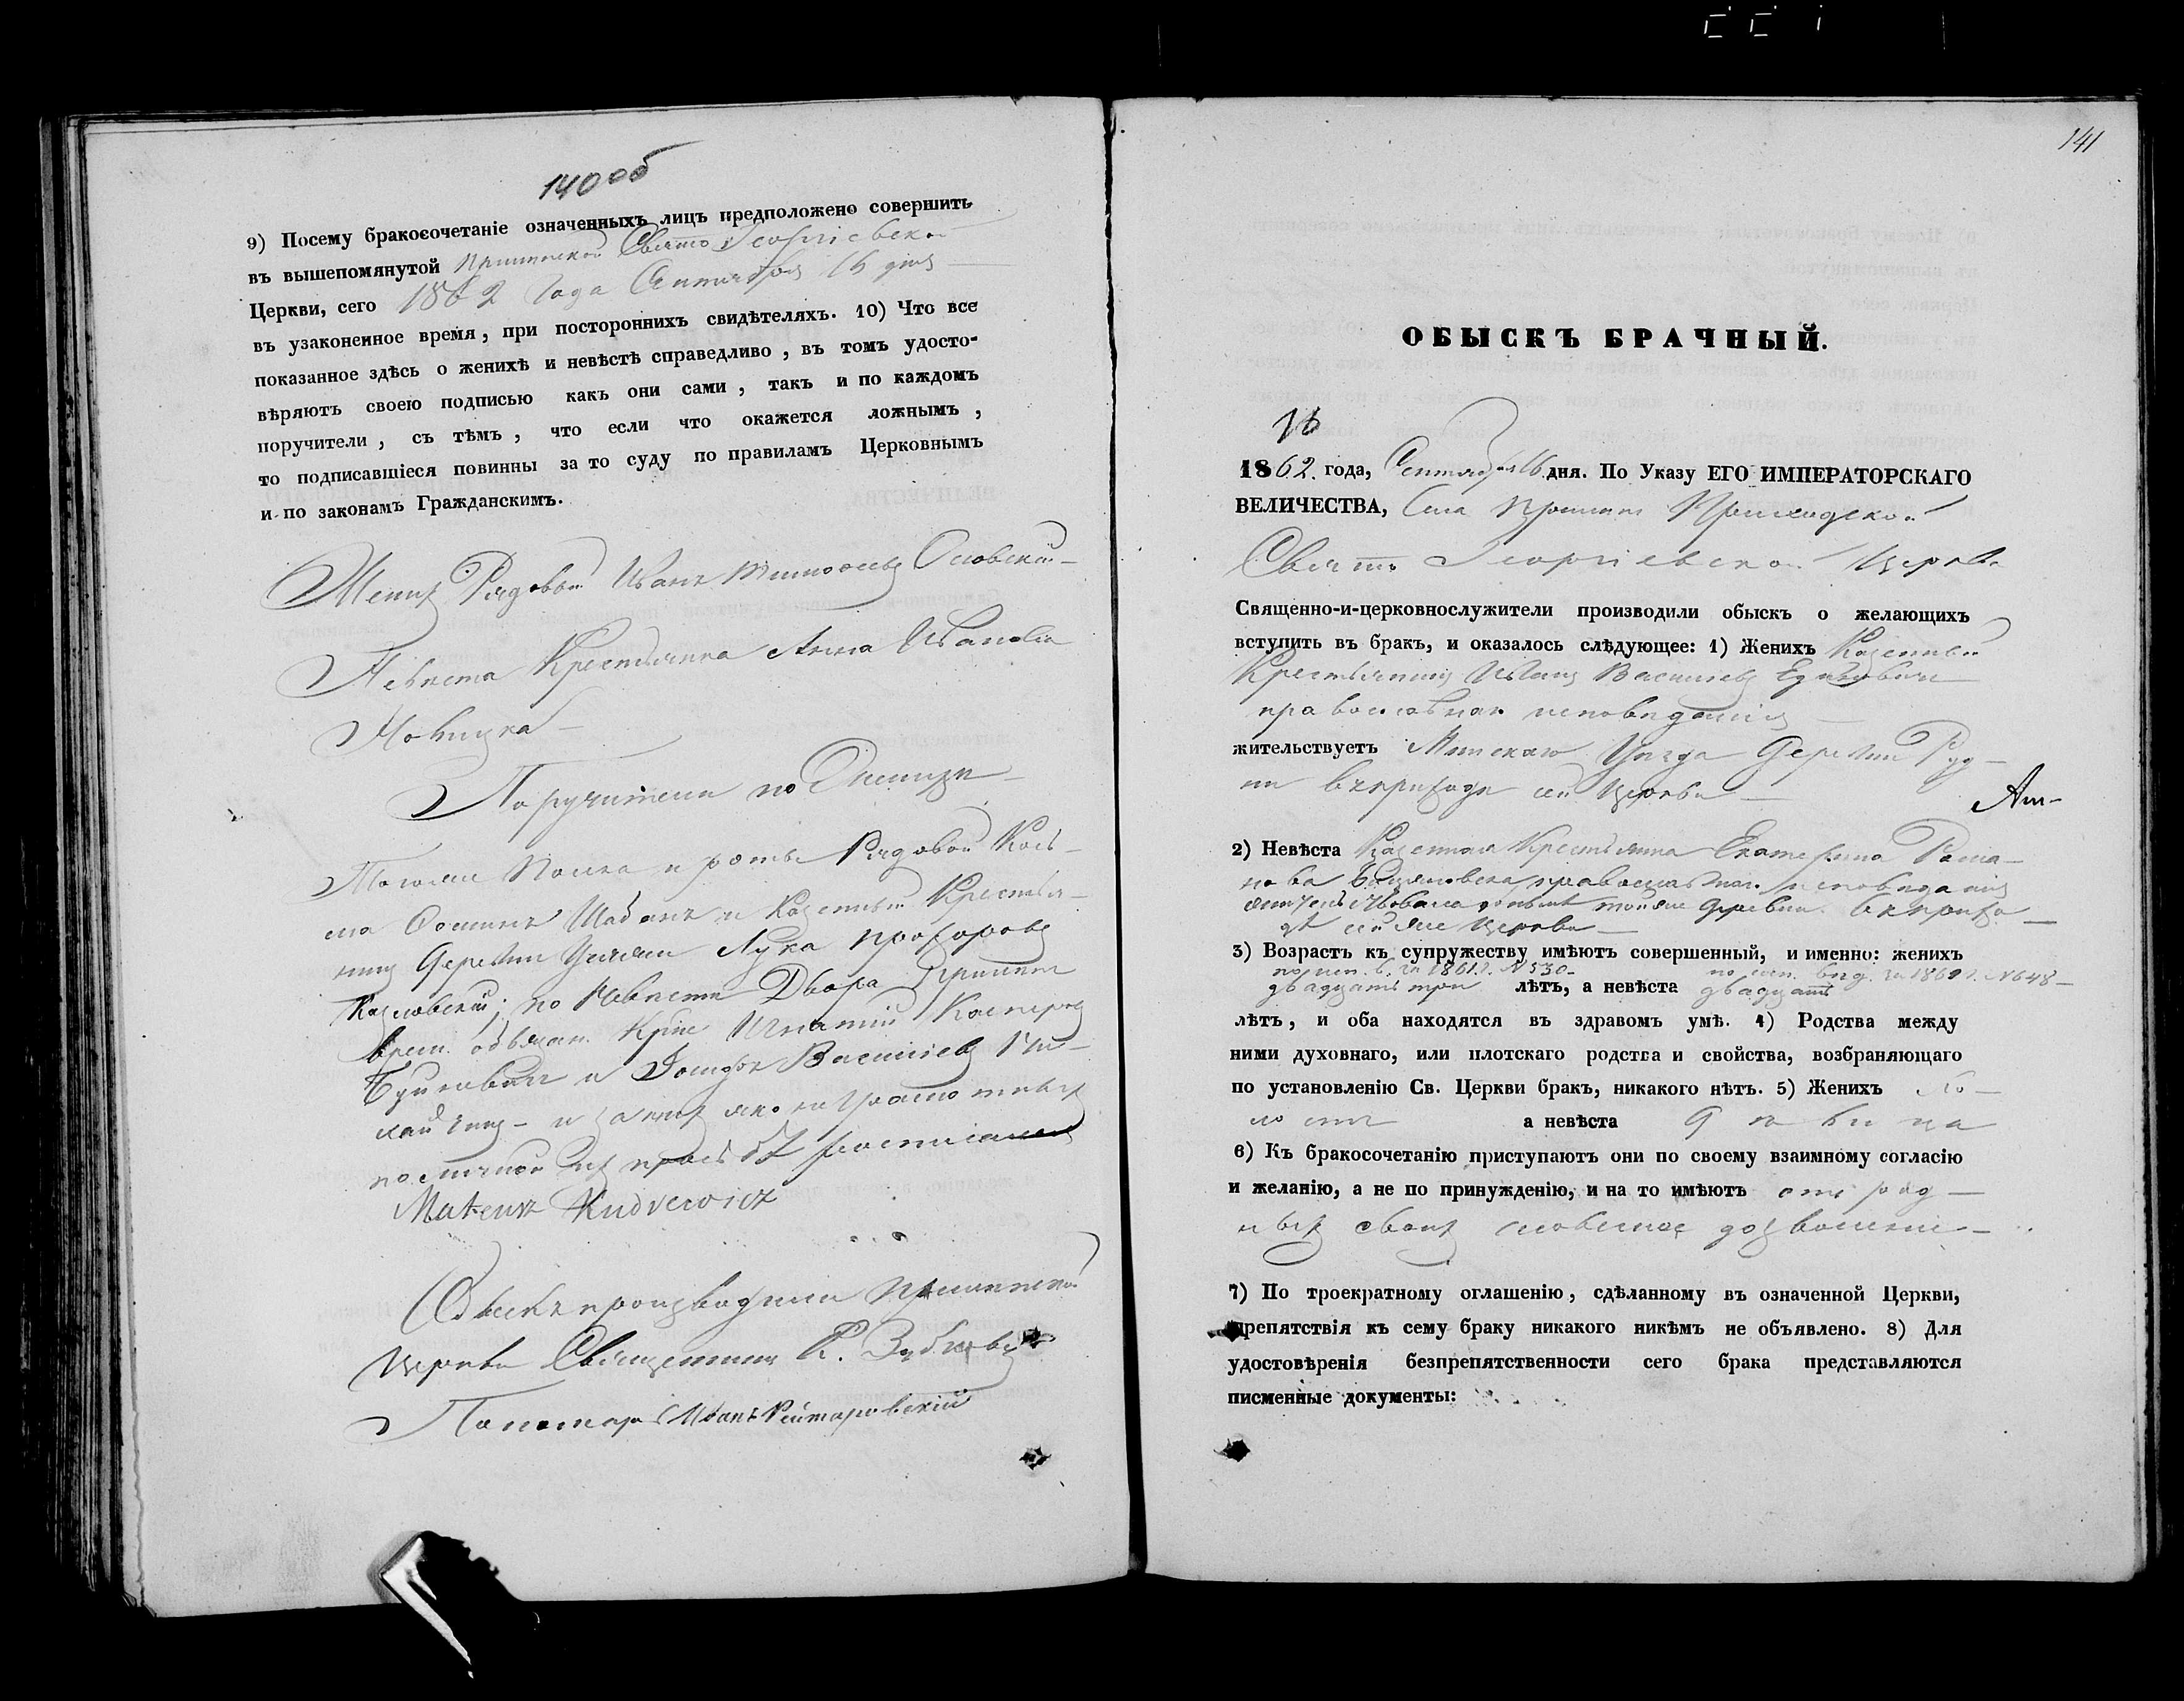 140 об
9) Посему бракосочетаніе означенныхъ лицъ предположено совершить
въ вышепомянутой Свято Георгіевской
Церкви, сего 1862 года Сентября 16 дня
въ узаконенное время, при постороннихъ свидѣтеляхъ. 10) Что все
показанное здѣсь о женихѣ и невѣстѣ справедливо, въ томъ удосто-
вѣряютъ своею подписью какъ они сами, такъ и по каждомъ
поручители, съ тѣмъ, что если что окажется ложнымъ,
то подписавшіеся повинны за то суду по правиламъ Церковнымъ
и по законамъ Гражданскимъ.
Женихъ Рядовый Иванъ
Невѣста Крестьянка Анна Иванова
Новицка
Поручители по Женихѣ
Тогоже Полка и роты Рядовой Кось-
ма и Казенный Крестья-
нинъ Деревни Лука Прохоровъ
Козловскій; по Невѣстѣ Двора
врем. обязан. Игнатій Касперовъ
и Васильевъ
и за нихъ яко неграмотныхъ
по личной ихъ прозьбѣ росписался
Mateusz Kudrewicz
Обыскъ производили
Церкви Священникъ К.
Пономарь Иванъ Рейтаровскій
141
ОБЫСКЪ БРАЧНЫЙ.
16
1862 года, Сентября 16 дня. По Указу ЕГО ИМПЕРАТОРСКАГО
ВЕЛИЧЕСТВА, Села Приходской
Свято Георгіевской Церкви
Священно-и-церковнослужители производили обыскъ о желающихъ
вступить въ бракъ, и оказалось слѣдующее: 1) Женихъ Казенный
Крестьянинъ Иванъ Васильевъ
православнаго исповѣданія
жительствуетъ Минскаго Уѣзда Деревни Руд-
ни въ приходѣ сей Церкви
2) Невѣста Казенная Крестьянка Екатерина Рома-
нова православнаго исповѣданія
жительствовала донынѣ тойже Деревни въ прихо-
дѣ сейже Церкви
3) Возрастъ къ супружеству имѣютъ совершенный, и именно: женихъ
по исп. в. за 1861 г. № 530 по исп. вѣд. за 1861 г. № 648
двадцать три лѣтъ, а невѣста двадцать
лѣтъ, и оба находятся въ здравомъ умѣ. 4) Родства между
ними духовнаго, или плотскаго родства и свойства, возбраняющаго
по установленію Св. Церкви бракъ, никакого нѣтъ. 5) Женихъ хо-
лостъ а невѣста дѣвица
6) Къ бракосочетанію приступаютъ они по своему взаимному согласію
и желанію, а не по принужденію, и на то имѣютъ отъ род-
ныхъ своихъ словесное дозволеніе
7) По троекратному оглашенію, сдѣланному въ означенной Церкви,
препятствія къ сему браку никакого никѣмъ не объявлено. 8) Для
удостовѣренія безпрепятственности сего брака представляются
писменные документы: